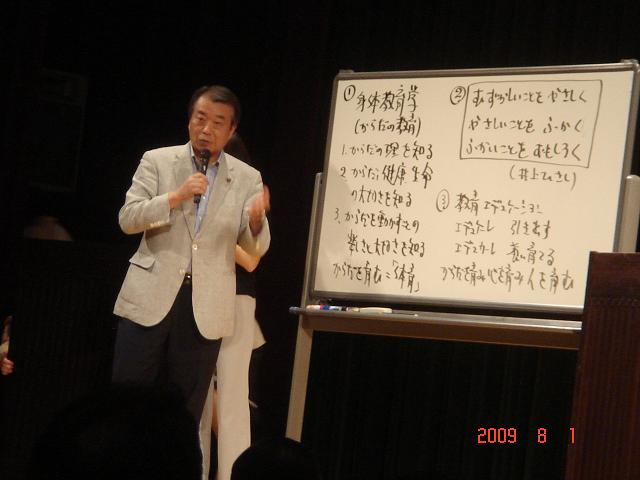 ① 身体教育学
(からだの教育)
1. からだの理を知る
2. からだ, 健康 生命
の大切さを知る
3. からだを動かすことの
楽しさと大切さを知る
からだを育む=「体育」
② むずかしいことを やさしく
やさしいことを ふかく
ふかいことを おもしろく
(井上ひさし)
③ 教育 エデュケーション
エデュケーレ 引き出す
エデュカーレ 養い育てる
からだを育み 心を育み 人を育む
2009 8 1